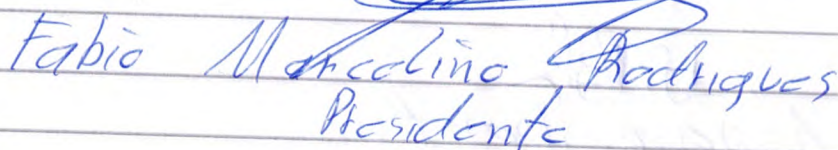 Fabio Marcolino Rodrigues
Presidente